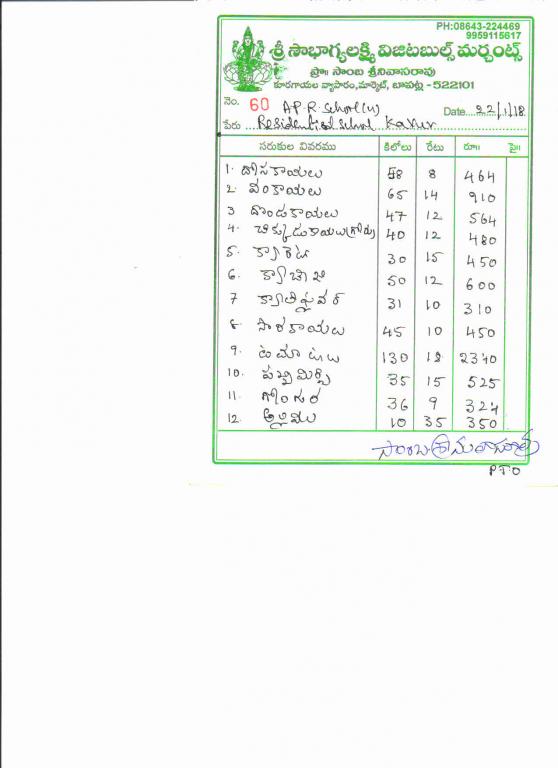 PH:08643-224469
9959115617
శ్రీ సౌభాగ్యలక్ష్మి విజిటబుల్స్ మర్చంట్స్
ప్రొ॥ సాంబ శ్రీనివాసరావు
కూరగాయల వ్యాపారం, మార్కెట్, బాపట్ల - 522101
నెం. 60 A.P.R. School (U) Date 22/1/18
పేరు Residential School Karur
సరుకుల వివరము కిలోలు రేటు రూ॥ పై॥
1. దోసకాయలు 58 8 464
2. వంకాయలు 65 14 910
3 దొండకాయలు 47 12 564
4. చిక్కుడుకాయలు (గోరు) 40 12 480
5. క్యారెట్ 30 15 450
6. క్యాబేజి 50 12 600
7 క్యాలిఫ్లవర్ 31 10 310
8. సొరకాయలు 45 10 450
9. టమాటలు 130 18 2340
10. పచ్చిమిర్చి 35 15 525
11. గోంగూర 36 9 324
12. అల్లము 10 35 350
P.T.O